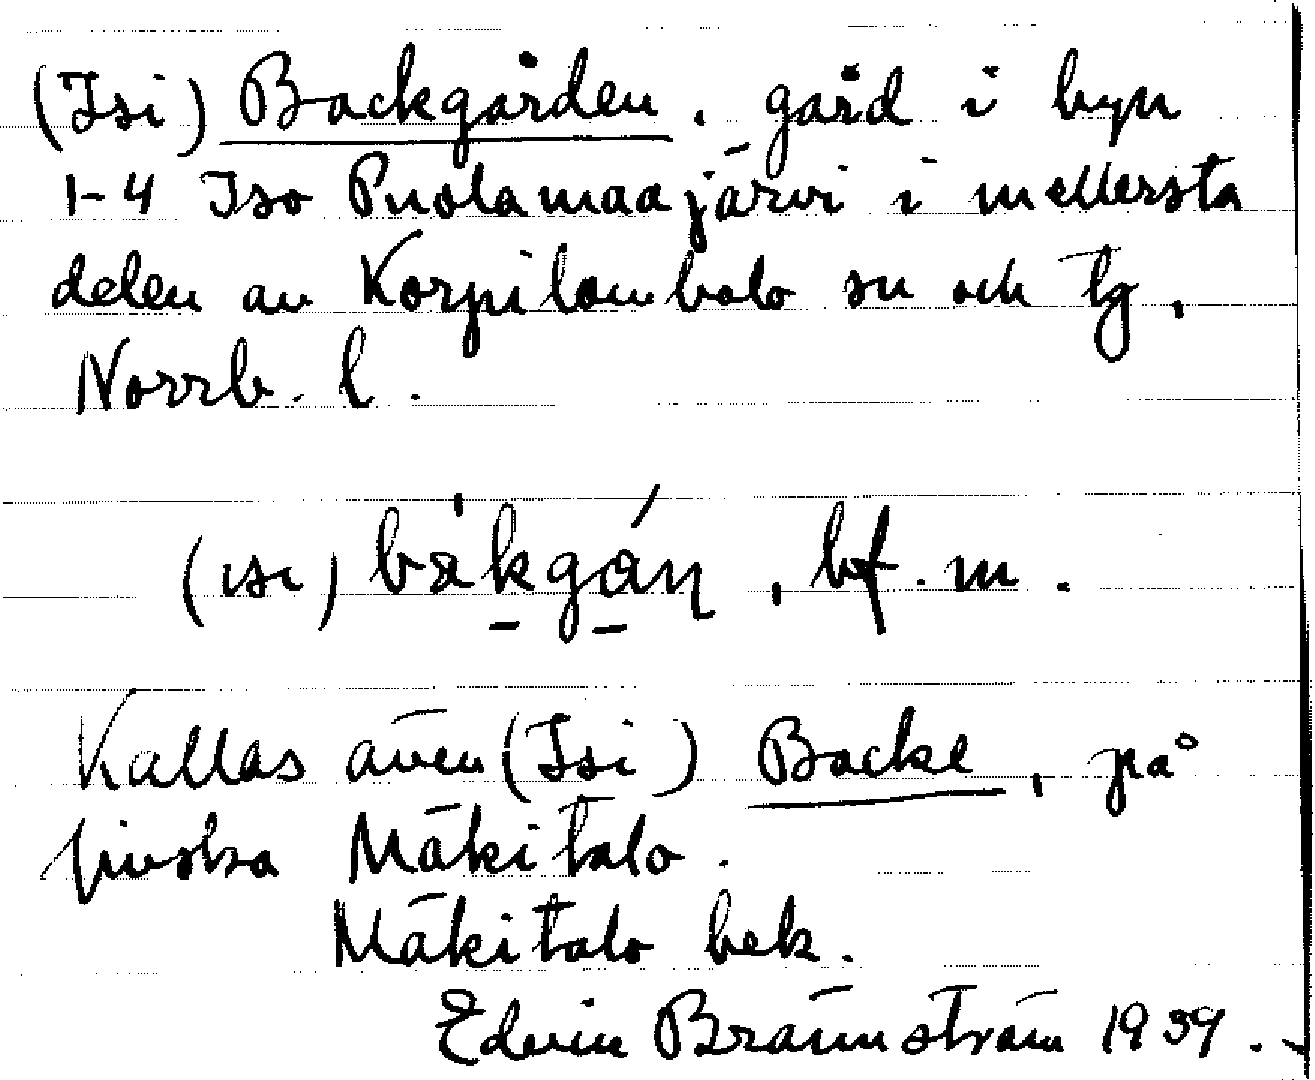 (Isi) Backgården, gård i byn
1-4 Iso Puolamaajärvi i mellersta
delen av Korpilombolo sn och tg,
Norrb. l.
(ısı) bàkgán, bf. m.
Kallas även (Isi) Backe, på
finska Mäkitalo.
Mäkitalo bek.
Edvin Brännström 1939.